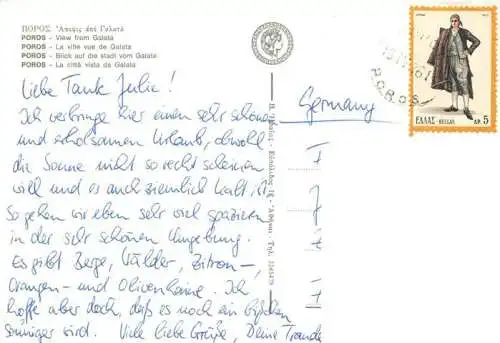 ΠΟΡΟΣ. Ἄποψις ἀπό Γαλατᾶ
POROS - View from Galata
POROS - La ville vue de Galata
POROS - Blick auf die stadt vom Galata
POROS - La città vista da Galata
Liebe Tante Julie!
Ich verbringe hier einen sehr schönen
und erholsamen Urlaub, obwohl
die Sonne nicht so recht scheinen
will und es auch ziemlich kalt ist.
So gehen wir eben sehr viel spazieren
in der sehr schönen Umgebung.
Es gibt Berge, Wälder, Zitron-,
Orangen- und Olivenhaine. Ich
hoffe aber doch, daß es noch ein bißchen
sonniger wird. Viele liebe Grüße, Deine Traude
Germany
POROS
ΕΛΛΑΣ-HELLAS ΔΡ. 5